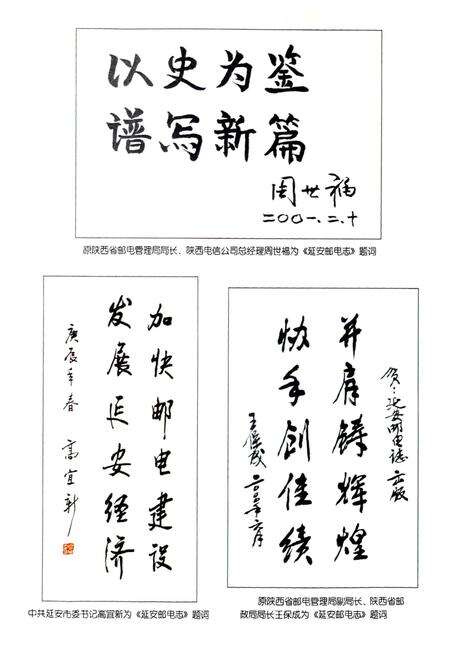 以史为鉴
谱写新篇
周世福
二00一.二.十
原陕西省邮电管理局局长、陕西电信公司总经理周世福为《延安邮电志》题词
加快邮电建设
发展延安经济
庚辰年春 高宜新
中共延安市委书记高宜新为《延安邮电志》题词
贺：延安邮电志出版
并肩铸辉煌
协手创佳绩
王保成
原陕西省邮电管理局副局长、陕西省邮
政局局长王保成为《延安邮电志》题词